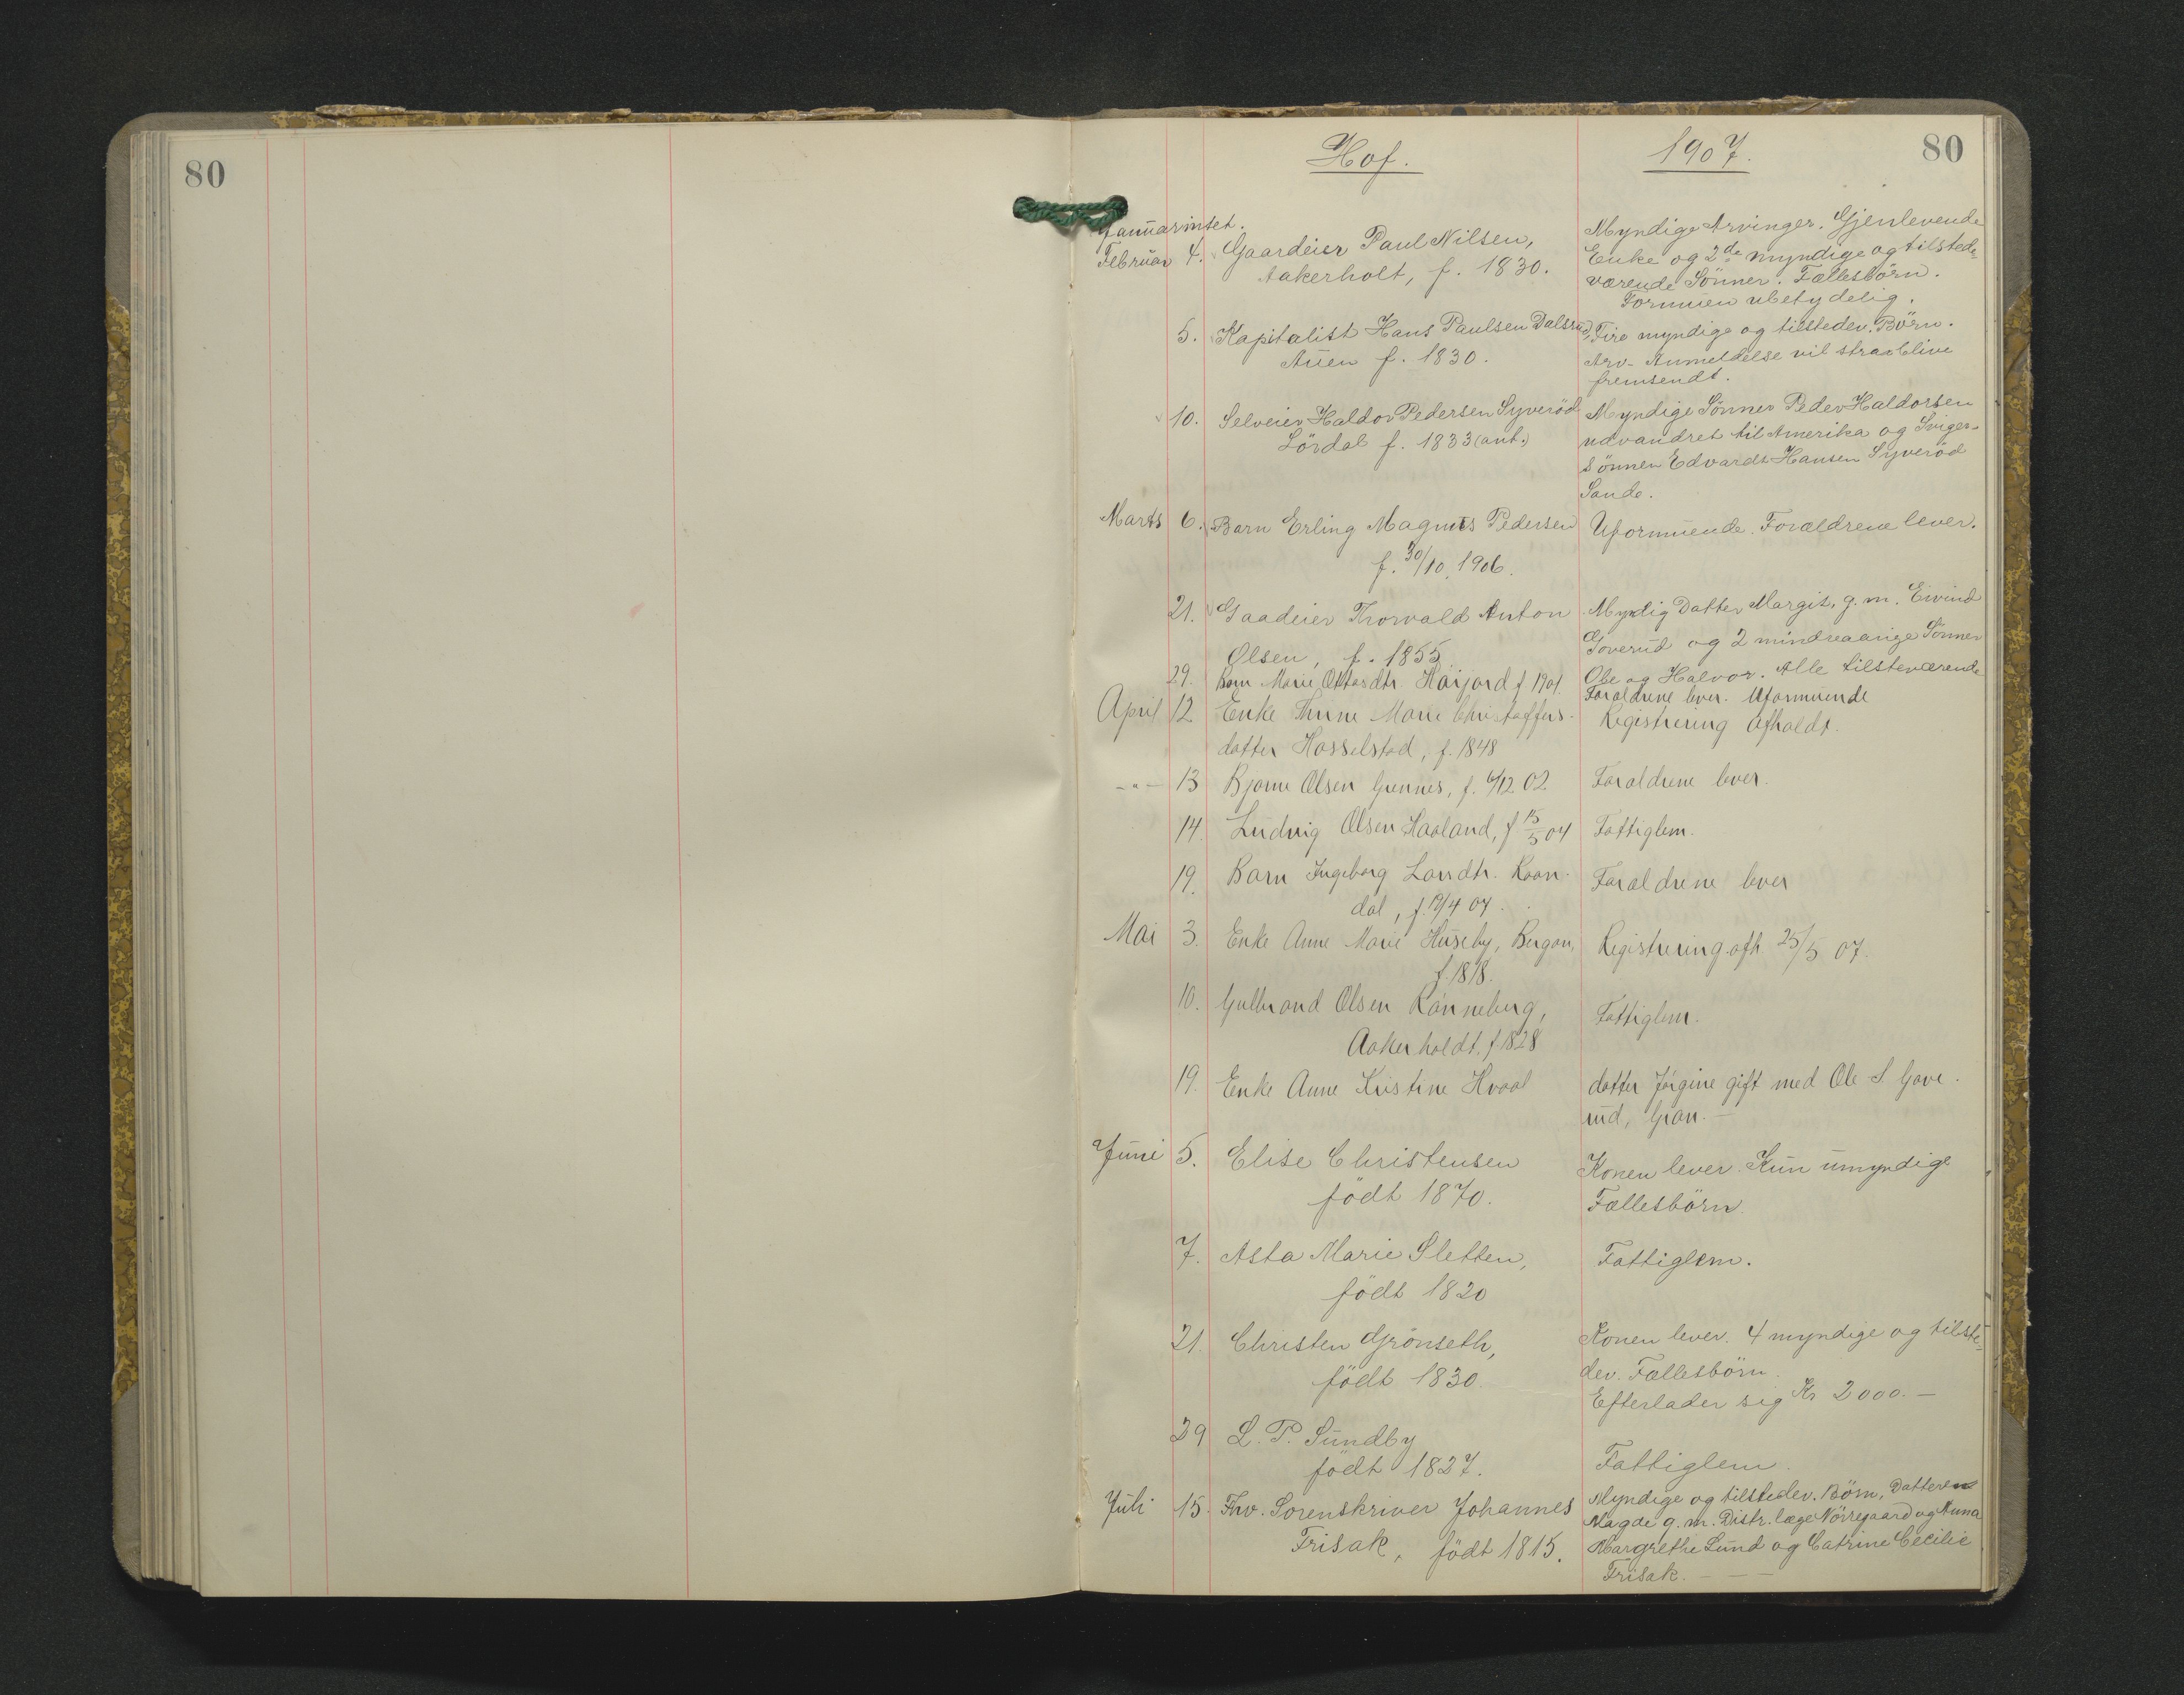 80
Hof. 1907. 80
Januar intet.
Februar 4. Gaardeier Paul Nilsen,
Aakerholt, f. 1830.
Myndige Arvinger. Gjenlevende
Enke og 2de myndige og tilstede
værende Sönner. Fællesbörn.
Formuen ubetydelig.
5. Kapitalist Hans Paulsen Dalsrud,
Auen f. 1830.
Fire myndige og tilstedev. Börn.
Arv-Anmeldelse vil strax blive
fremsendt.
10. Selveier Haldor Pedersen Syveröd
Lördal f. 1833 (ant.)
Myndige Sönner Peder Haldorsen
udvandret til Amerika og Sviger-
sönnen Edvardt Hansen Syveröd
Sande.
Marts 6. Barn Erling Magnus Pedersen
f. 30/10 1906.
Uformuende. Forældrene lever.
21. Gaadeier Thorvald Anton
Olsen, f. 1855
Myndig Datter Margit, g. m. Eivind
Goverud og 2 mindreaarige Sönner
Ole og Halvor. Alle tilsteværende
29. Barn Marie Ottarsdtr. f 1901.
Forældrene lever. Uformuende
April 12 Enke Thrine Marie Christoffers-
datter Hasselstad, f. 1848
Registrering Afholdt.
-"- 13 Bjarne Olsen Grennes, f. 6/12 02.
Forældrene lever.
14 Ludvig Olsen Haaland, f 15/5 04
Fattiglem.
19. Barn Ingeborg Larsdtr. Kaar-
dal, f. 19/4 07.
Forældrene lever
Mai 3. Enke Anne Marie Huseby, Bergan,
f 1818.
Registrering. afh 25/5 07.
10. Gulbrand Olsen Rönneberg,
Aakerholdt, f 1828
Fattiglem.
19. Enke Anne Kristine Hvaal
datter Jörgine gift med Ole S Gove-
rud, Gran. -
Juni 5. Elise Christensen
födt 1870.
Konen lever. Kun umyndige
Fællesbörn.
7. Asta Marie Sletten,
födt 1820
Fattiglem.
21. Christen Grönseth,
födt 1830.
Konen lever. 4 myndige og tilste-
dev. Fællesbörn.
Efterlader sig Kr 2000. -
29 L. P. Sundby
födt 1827.
Fattiglem.
Juli 15. Fhv. Sorenskriver Johannes
Frisak, födt 1815.
Myndige og tilstedev. Börn, Datteren
Magde g. m. Distr. læge Nörregaard og Anna
Margrethe Lund og Catrine Cecilie
Frisak. - - -